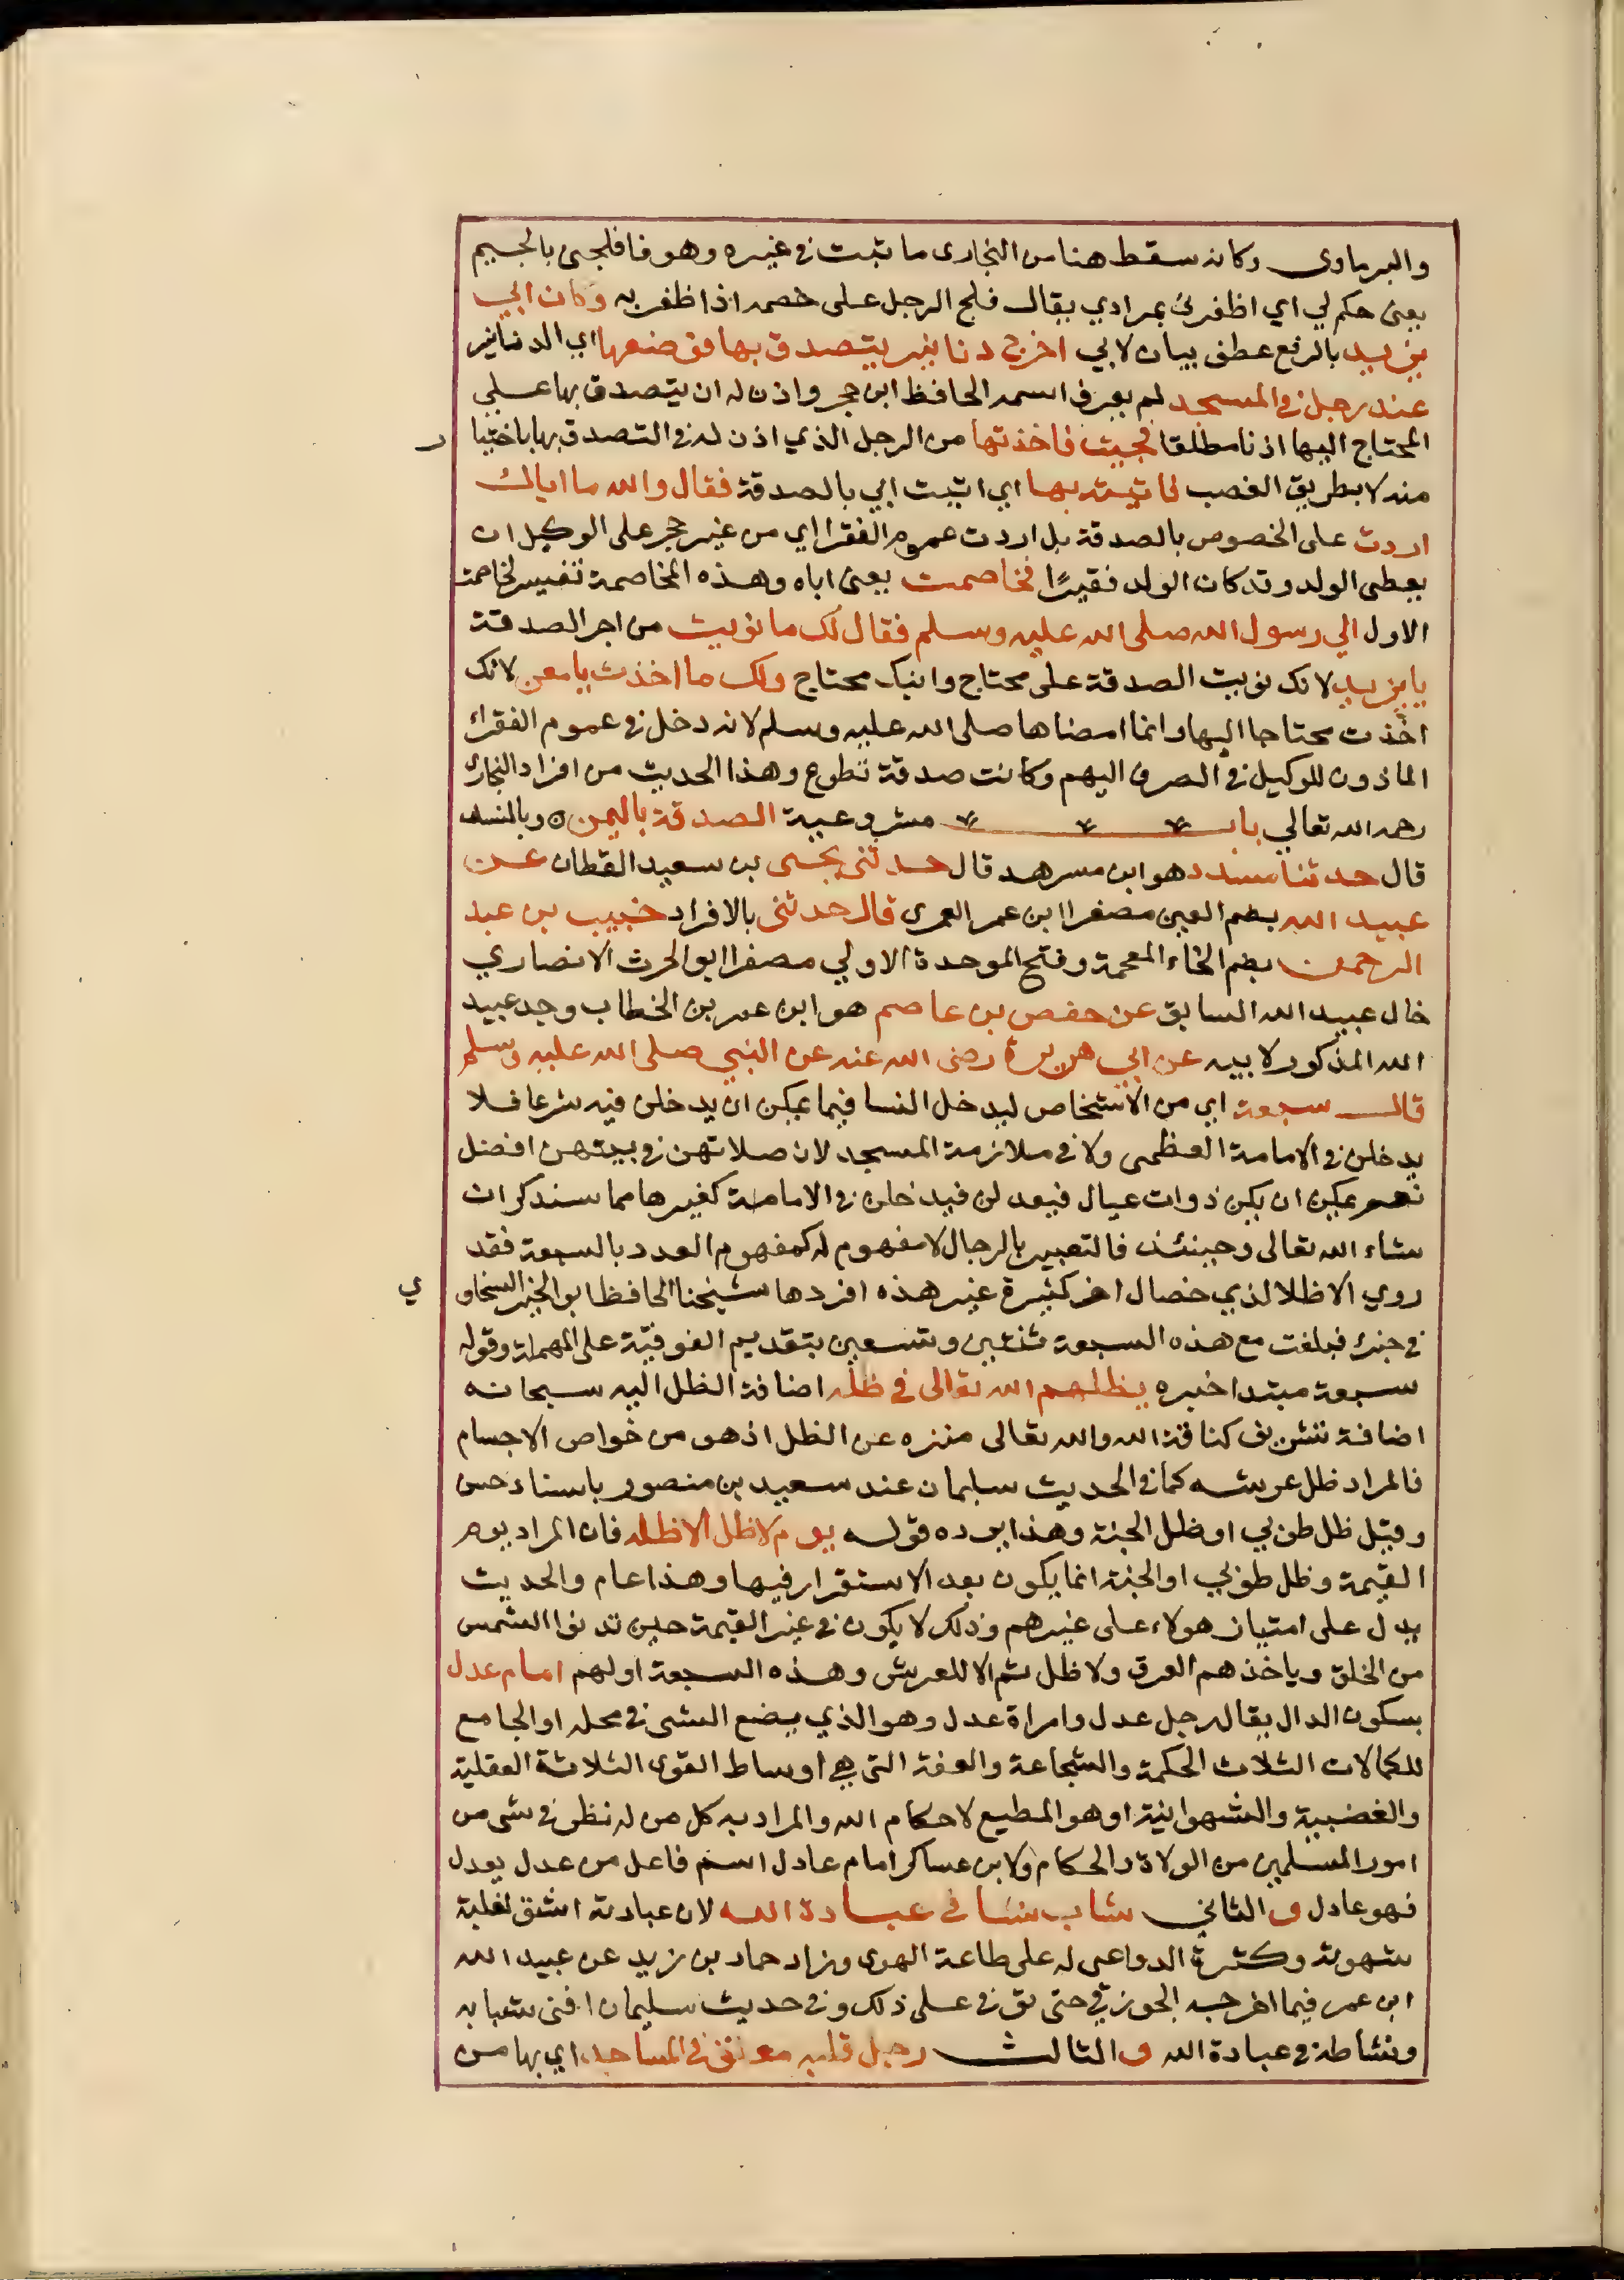 والبرماوى وكانه سقط هنا من البخارى ما ثبت في غيره وهو فافلجنى بالجيم
يعنى حكم لي اي اظفرنى بمرادي يقال فلج الرجل على خصمه اذا ظفر به وكان ابي
يزيد بالرفع عطف بيان لابي اخرج دنانير يتصدق بها فوضعها اي الدنانير
عند رجل في المسجد لم يعرف اسمه الحافظ ابن حجر واذن له ان يتصدق بها على
المحتاج اليها اذنا مطلقا فجيت فاخذتها من الرجل الذي اذن له في التصدق بها باختيا ر
منه لا بطريق الغصب فاتيته بها اي اتيت ابي بالصدقة فقال والله ما اياك
اردت على الخصوص بالصدقة بل اردت عموم الفقرا اي من غير حجر على الوكيل ان
يعطى الولد وقد كان الولد فقيرًا فخاصمته يعنى اباه وهذه المخاصمة تفسير لخاصمت
الاول الي رسول الله صلى الله عليه وسلم فقال لك ما نويت من اجر الصدقة
يا يزيد لانك نويت الصدقة على محتاج وابنك محتاج ولك ما اخذت يا معن لانك
اخذت محتاجا اليها وانما امضاها صلى الله عليه وسلم لانه دخل في عموم الفقراء
الماذون للوكيل في الصرف اليهم وكانت صدقة تطوع وهذا الحديث من افراد البخارى
رحمه الله تعالي باب مشروعية الصدقة باليمين وبالسند
قال حدثنا مسدد هو ابن مسرهد قال حدثنى يحيى بن سعيد القطان عن
عبيد الله بضم العين مصغرا ابن عمر العمرى قال حدثنى بالافراد خبيب بن عبد
الرحمن بضم الخاء المعجمة وفتح الموحدة الاولي مصغرا ابو الحرث الانصاري
خال عبيد الله السابق عن حفص بن عاصم هو ابن عمر بن الخطاب وجد عبيد
الله المذكور لابيه عن ابي هريرة رضى الله عنه عن النبي صلى الله عليه وسلم
قال سبعة اي من الاشخاص ليدخل النسا فيما يمكن ان يدخلن فيه شرعا فلا
يدخلن في الامامة العظمى ولا في ملازمة المسجد لان صلاتهن في بيتهن افضل
نعم يمكن ان يكن ذوات عيال فيعدلن فيدخلن في الامامة كغيرها مما سنذكر ان
شاء الله تعالى وحينئذ فالتعبير بالرجال لا مفهوم له كمفهوم العدد بالسبعة فقد
روي الاظلال لذي خصال اخر كثيرة غير هذه افردها شيخنا الحافظ ابو الخير السخاو ي
في جزء فبلغت مع هذه السبعة ثنتين وتسعين بتقديم الفوقية على المهملة وقوله
سبعة مبتدا خبره يظلهم الله تعالى في ظله اضافة الظل اليه سبحانه
اضافة تشريف كناقة الله والله تعالى منزه عن الظل اذ هو من خواص الاجسام
فالمراد ظل عرشه كما في الحديث سليمان عند سعيد بن منصور باسناد حسن
وقيل ظل طوبي او ظل الجنة وهذا يرده قوله يوم لا ظل الا ظله فان المراد يوم
القيمة وظل طوبي او الجنة انما يكون بعد الاستقرار فيها وهذا عام والحديث
يدل على امتياز هولاء على غيرهم وذلك لا يكون في غير القيمة حين تدنوا الشمس
من الخلق وياخذهم العرق ولا ظل ثم الا للعرش وهذه السبعة اولهم امام عدل
بسكون الدال يقال رجل عدل وامراة عدل وهو الذي يضع الشى في محله او الجامع
للكمالات الثلاث الحكمة والشجاعة والعفة التى هي اوساط القوى الثلاثة العقلية
والغضبية والشهوانية او هو المطيع لاحكام الله والمراد به كل من له نظر في شى من
امور المسلمين من الولاة والحكام ولابن عساكر امام عادل اسم فاعل من عدل يعدل
فهو عادل و الثاني شاب نشا في عبادة الله لان عبادته اشق لغلبة
شهوته وكثرة الدواعى له على طاعة الهوى وزاد حماد بن زيد عن عبيد الله
ابن عمر فيما اخرجه الجوزقي حتى توفى على ذلك وفي حديث سليمان افنى شبابه
ونشاطه في عبادة الله و الثالث رجل قلبه معلق في المساجد اي بها من